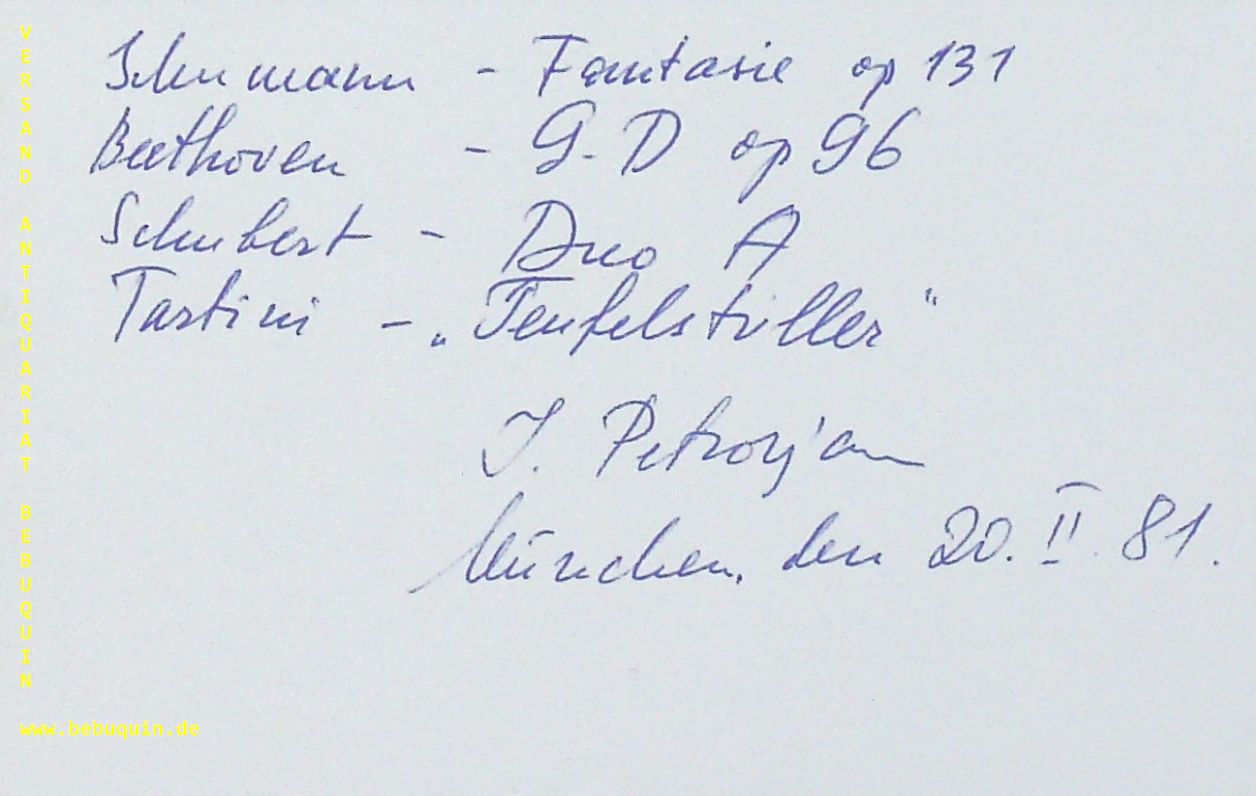 Schumann - Fantasie op 131
Beethoven - G-D op 96
Schubert - Duo A
Tartini - „Teufelstriller“
J. Petrosjan
München, den 20. II. 81.
VERSAND ANTIQUARIAT BEBUQUIN
www.bebuquin.de